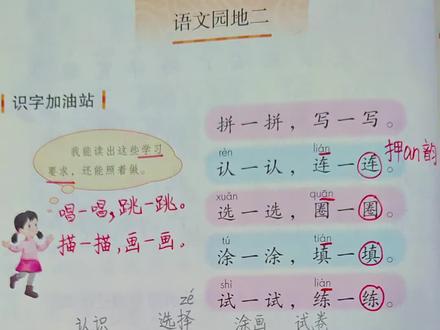 语文园地二
识字加油站
我能读出这些学习
要求，还能照着做。
唱一唱，跳一跳。
描一描，画一画。
拼一拼，写一写。
rèn lián
认一认，连一连。
押an韵
xuǎn quān
选一选，圈一圈。
tú tián
涂一涂，填一填。
shì liàn
试一试，练一练。
zé
认识 选择 涂画 试卷